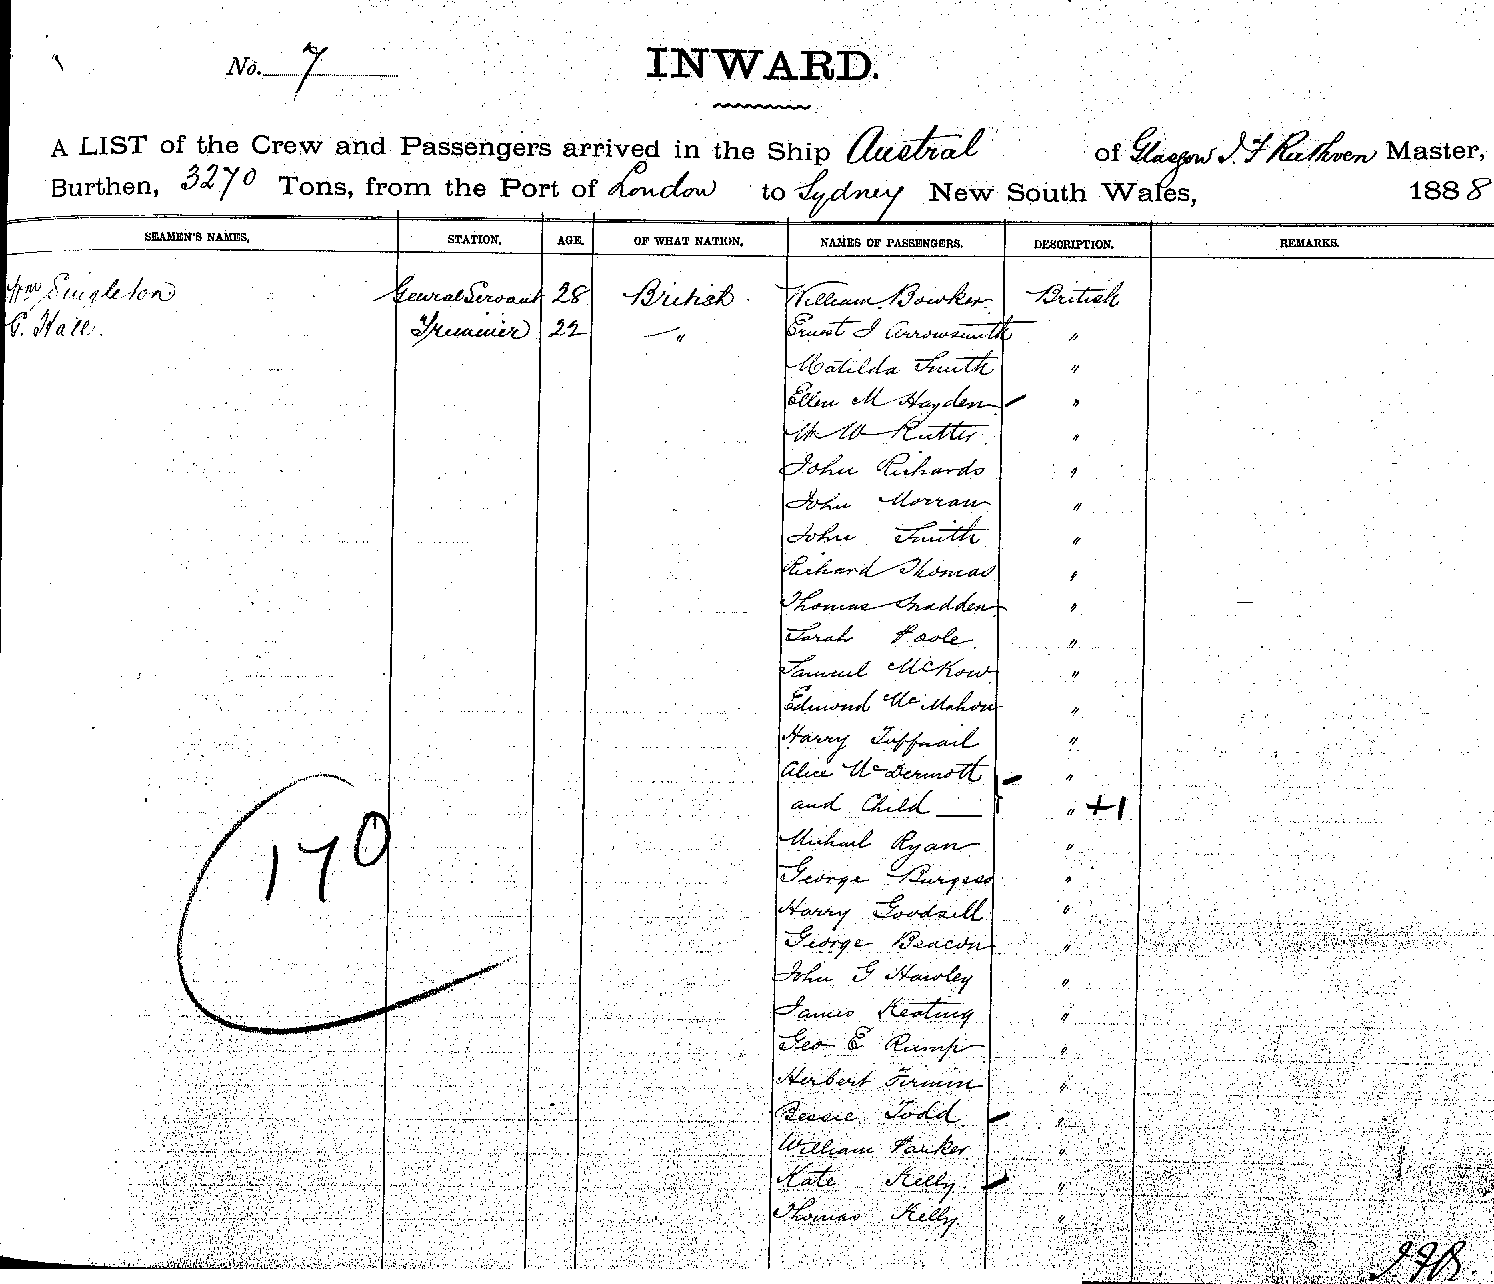 No. 7
INWARD.
A LIST of the Crew and Passengers arrived in the Ship Austral of Glasgow J. F Ruthven Master,
Burthen, 3270 Tons, from the Port of London to Sydney New South Wales, 1888
SEAMEN'S NAMES, STATION, AGE. OF WHAT NATION, NAMES OF PASSENGERS. DESCRIPTION. REMARKS.
Wm Singleton General Servant 28 British William Bowker British
G. Hall. Trimmer 22 — " Ernest J Arrowsmith "
Matilda Smith "
Ellen M Hayden "
W W Rutter "
John Richards "
John Morran "
John Smith "
Richard Thomas "
Thomas Madden "
Sarah Poole "
Samuel McKow "
Edmond McMahon "
Harry Tuffnail "
Alice McDermott "
and Child " +1
Michael Ryan "
George Burgess "
Harry Goodsell "
George Beacon "
170
John G Hawley "
James Keating "
Geo E Rump "
Herbert Firmin "
Bessie Todd "
William Parker "
Kate Kelly "
Thomas Kelly "
J.F.R.